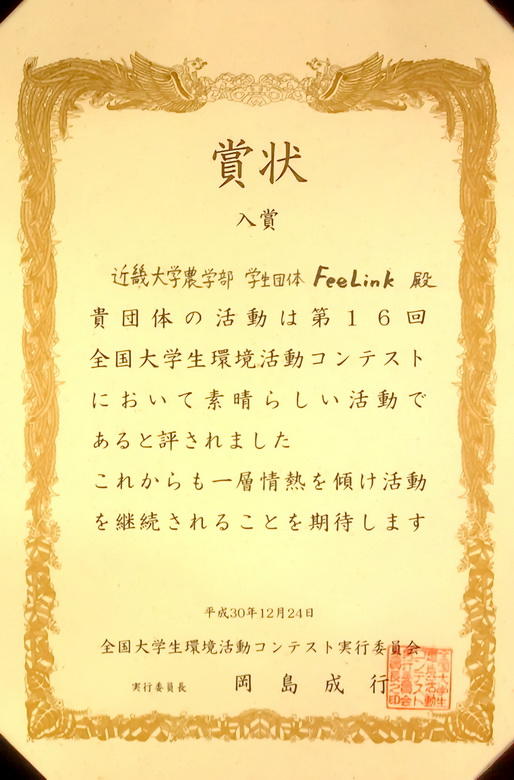 賞状
入賞
近畿大学農学部 学生団体 FeeLink 殿
貴団体の活動は第１６回
全国大学生環境活動コンテスト
において素晴らしい活動で
あると評されました
これからも一層情熱を傾け活動
を継続されることを期待します
平成30年12月24日
全国大学生環境活動コンテスト実行委員会
実行委員長 岡島成行